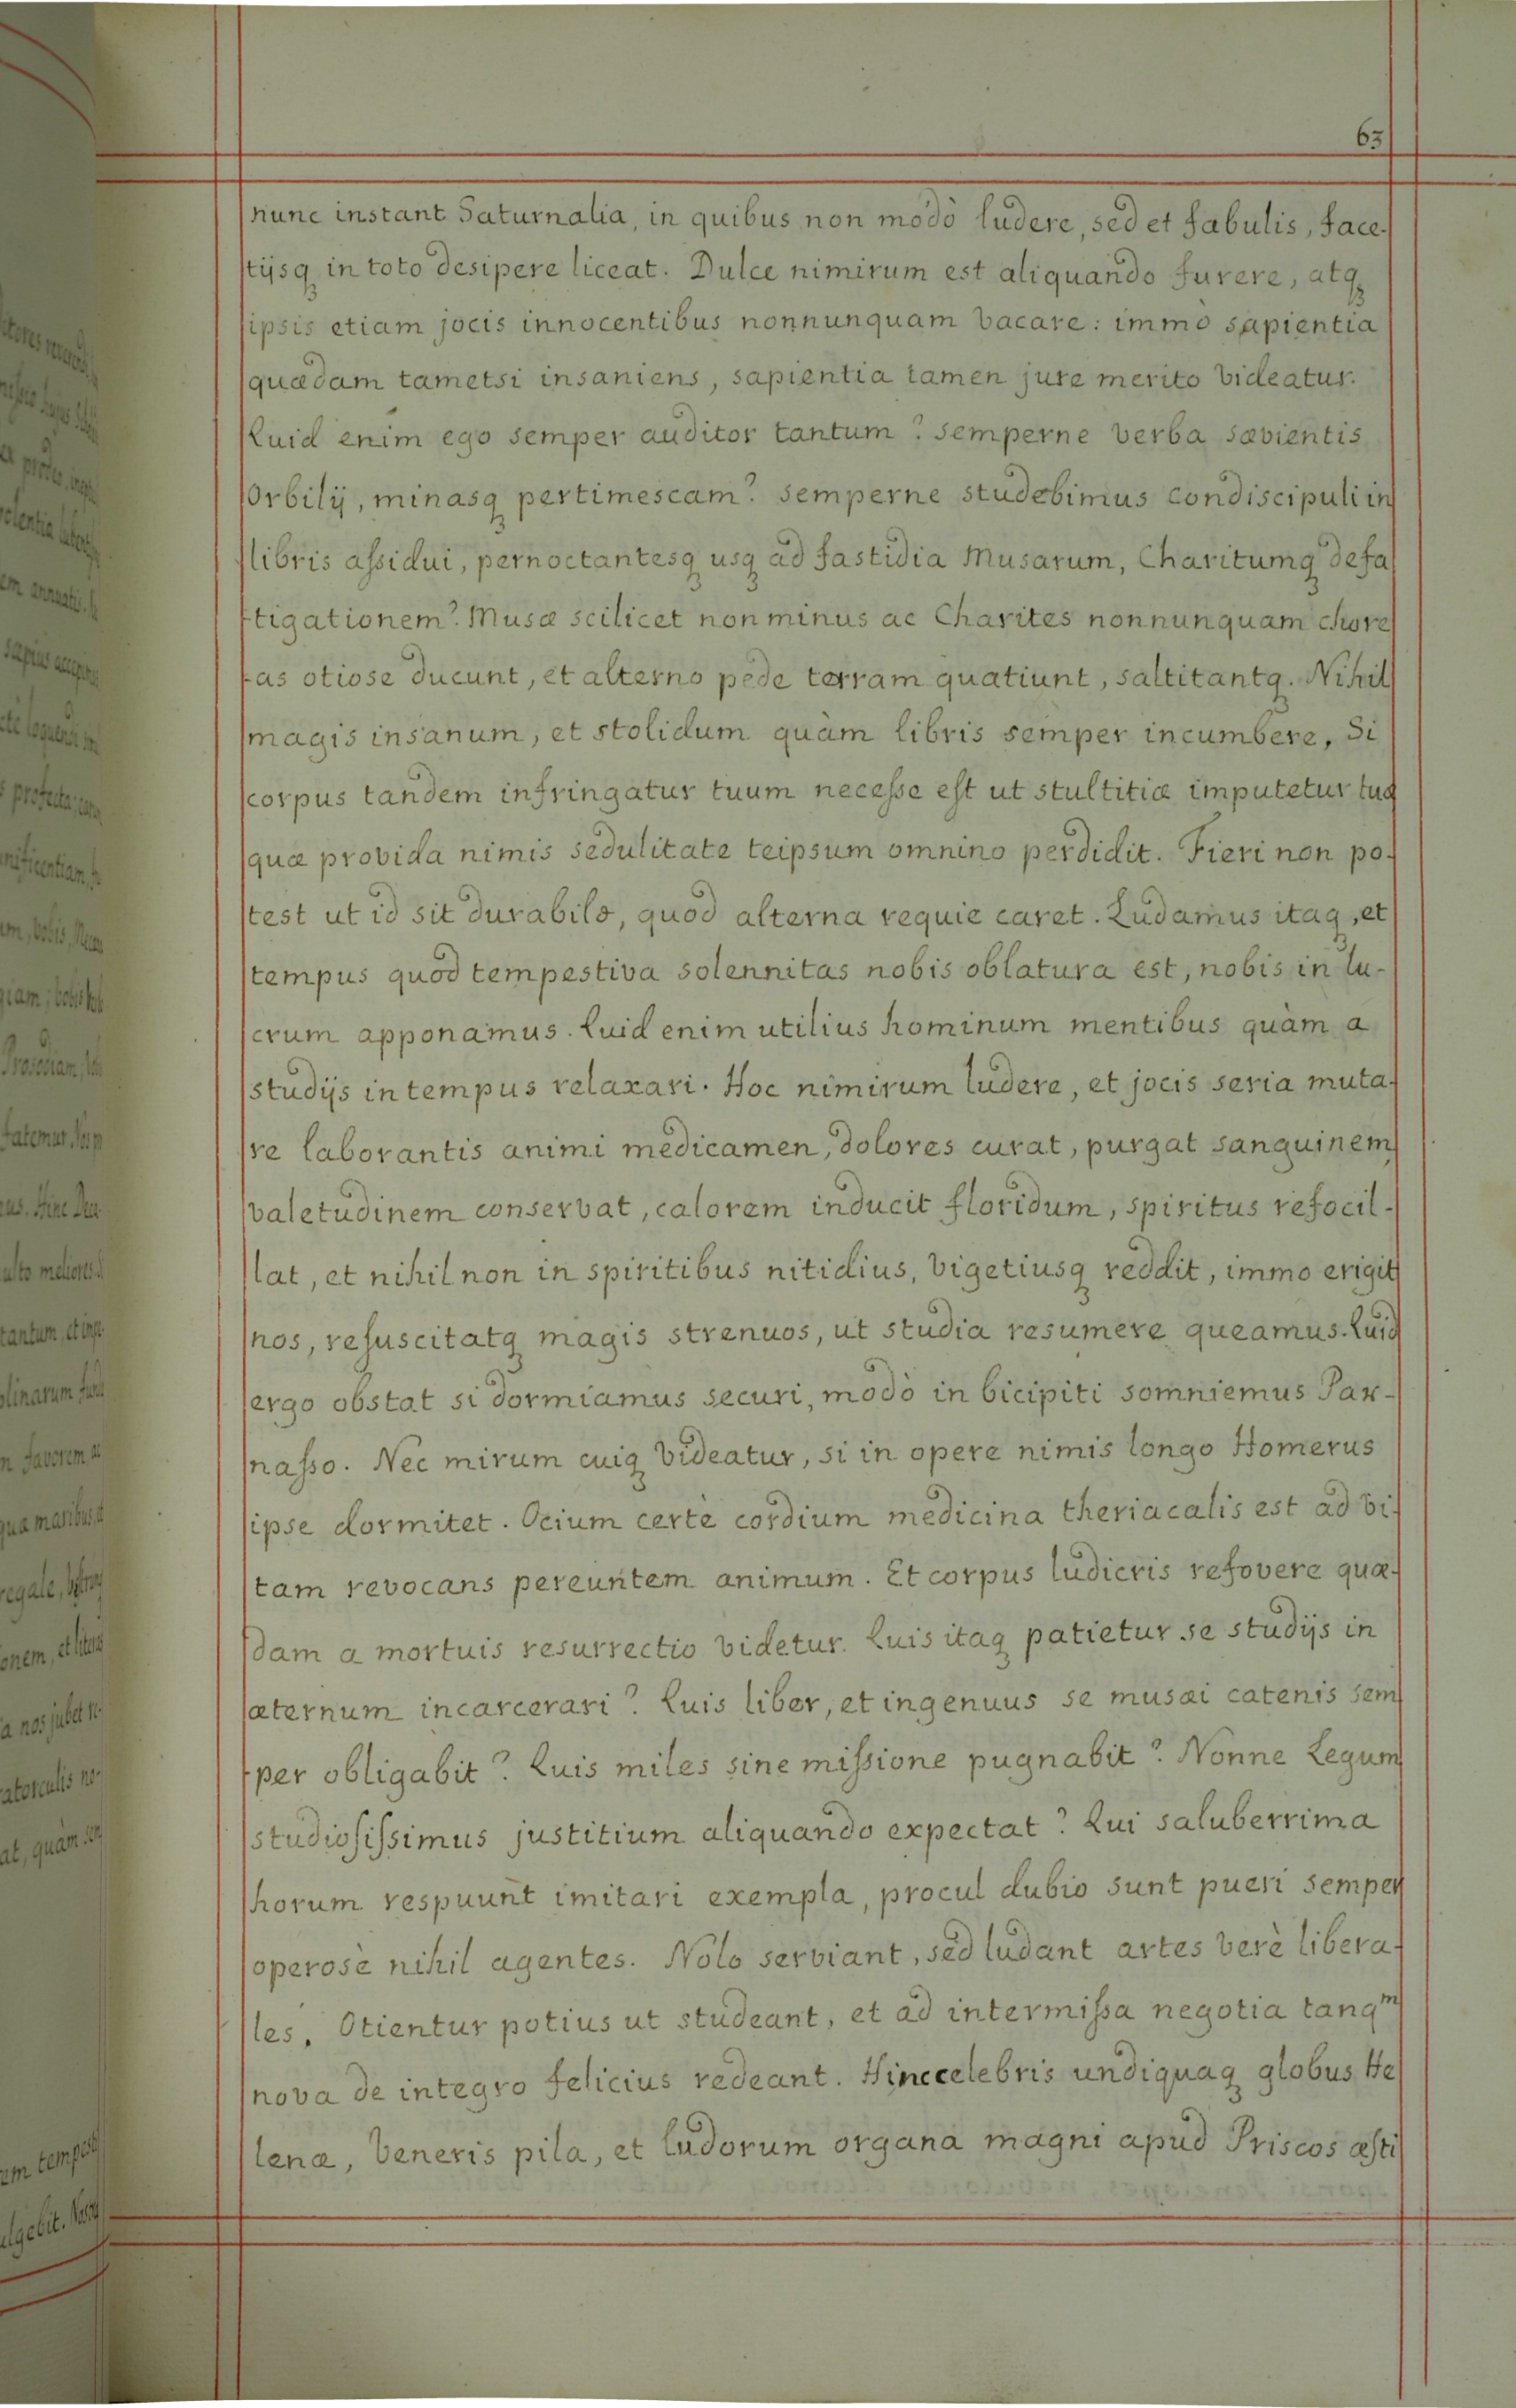 63
nunc instant Saturnalia, in quibus non modò ludere, sed et fabulis, face-
tijsq; in toto desipere liceat. Dulce nimirum est aliquando furere, atq;
ipsis etiam jocis innocentibus nonnunquam vacare: immò sapientia
quædam tametsi insaniens, sapientia tamen jure merito videatur.
Quid enim ego semper auditor tantum? semperne verba sævientis
Orbilij, minasq; pertimescam? semperne studebimus condiscipuli in
libris aſsidui, pernoctantesq; usq; ad fastidia Musarum, Charitumq; defa
-tigationem? Musæ scilicet non minus ac Charites nonnunquam chore
-as otiose ducunt, et alterno pede terram quatiunt, saltitantq;. Nihil
magis insanum, et stolidum quàm libris semper incumbere, Si
corpus tandem infringatur tuum neceſse eſt ut stultitiæ imputetur tuæ
quæ provida nimis sedulitate teipsum omnino perdidit. Fieri non po-
test ut id sit durabile, quod alterna requie caret. Ludamus itaq;, et
tempus quod tempestiva solennitas nobis oblatura est, nobis in lu-
crum apponamus. Quid enim utilius hominum mentibus quàm a
studijs in tempus relaxari. Hoc nimirum ludere, et jocis seria muta-
re laborantis animi medicamen, dolores curat, purgat sanguinem,
valetudinem conservat, calorem inducit floridum, spiritus refocil-
lat, et nihil non in spiritibus nitidius, vigetiusq; reddit, immo erigit
nos, reſuscitatq; magis strenuos, ut studia resumere queamus. Quid
ergo obstat si dormiamus securi, modò in bicipiti somniemus Par-
naſso. Nec mirum cuiq; videatur, si in opere nimis longo Homerus
ipse dormitet. Ocium certè cordium medicina theriacalis est ad vi-
tam revocans pereuntem animum. Et corpus ludicris refovere quæ-
dam a mortuis resurrectio videtur. Quis itaq; patietur se studijs in
æternum incarcerari? Quis liber, et ingenuus se musæi catenis sem
-per obligabit? Quis miles sine miſsione pugnabit? Nonne Legum
studioſiſsimus justitium aliquando expectat? Qui saluberrima
horum respuunt imitari exempla, procul dubio sunt pueri semper
operosè nihil agentes. Nolo serviant, sed ludant artes verè libera-
les. Otientur potius ut studeant, et ad intermiſsa negotia tanqᵐ
nova de integro felicius redeant. Hinc celebris undiquaq; globus He
lenæ, Veneris pila, et ludorum organa magni apud Priscos æſti